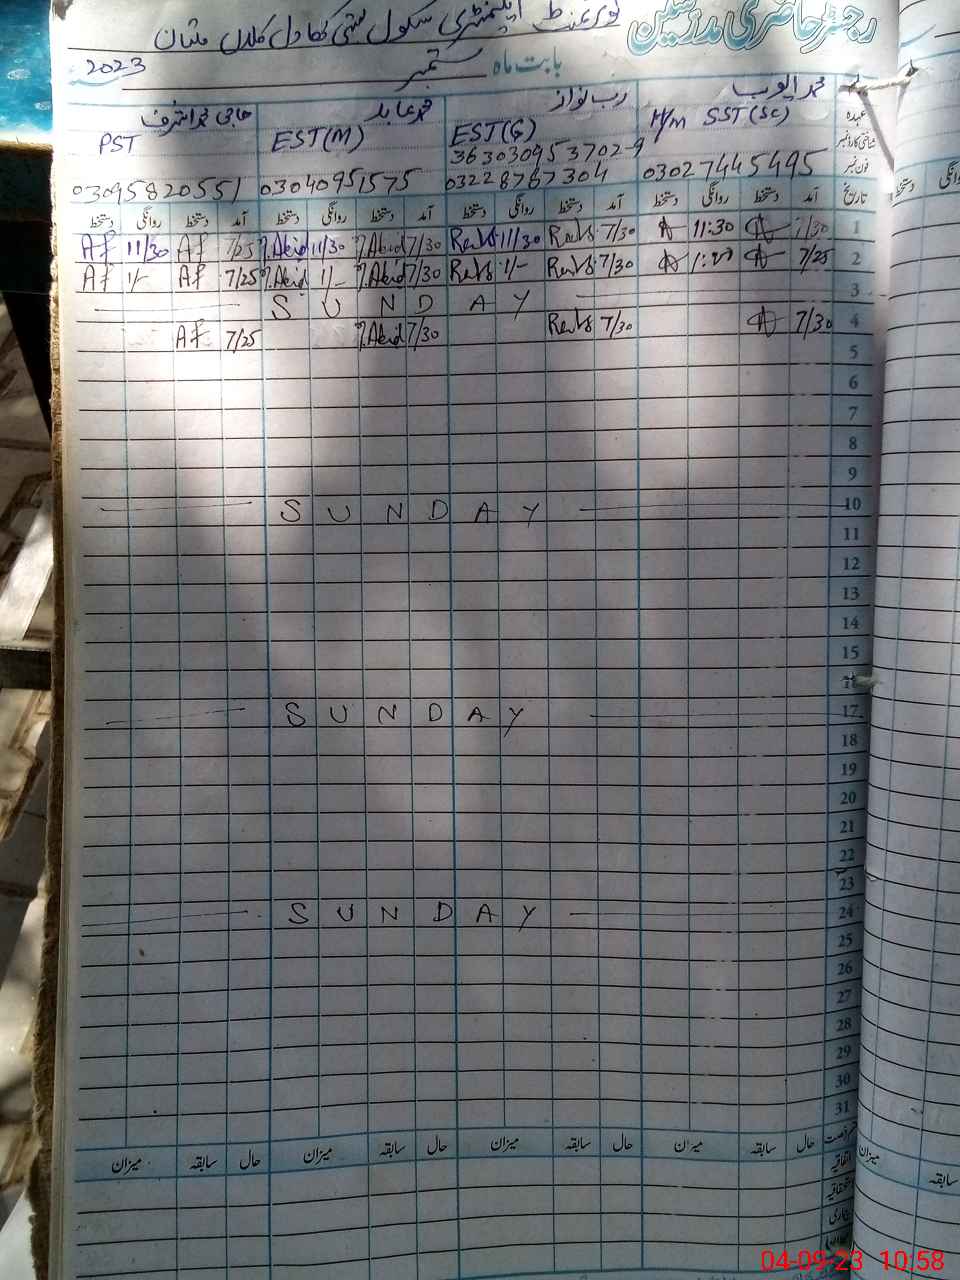 رجسٹر حاضری مدرسین گورنمنٹ ایلیمنٹری سکول بستی کھادل کلاں ملتان
بابت ماہ ستمبر 2023
عہدہ محمد ایوب رب نواز محمد عابد حاجی محمد اشرف
H/m SST(SC) EST(G) EST(M) PST
شناختی کارڈ نمبر 363030953702-9
فون نمبر 03027445495 03228767304 03040951575 03095820551
تاریخ آمد دستخط روانگی دستخط آمد دستخط روانگی دستخط آمد دستخط روانگی دستخط آمد دستخط روانگی دستخط
Af 11/30 Af 7/25 M.Abid 11/30 M.Abid 7/30 11/30 7/30 11:30 7/30 1
Af 1/- Af 7/25 M.Abid 1/- M.Abid 7/30 1/- 7/30 7/25 2
SUNDAY 3
Af 7/25 M.Abid 7/30 7/30 7/30 4
5
6
7
8
9
SUNDAY 10
11
12
13
14
15
16
SUNDAY 17
18
19
20
21
22
23
SUNDAY 24
25
26
27
28
29
30
31
حال سابقہ میزان حال سابقہ میزان حال سابقہ میزان حال سابقہ میزان
اتفاقیہ
استحقاقیہ
بیماری
روانگی
دستخط
میزان
سابقہ
04-09-23 10:58